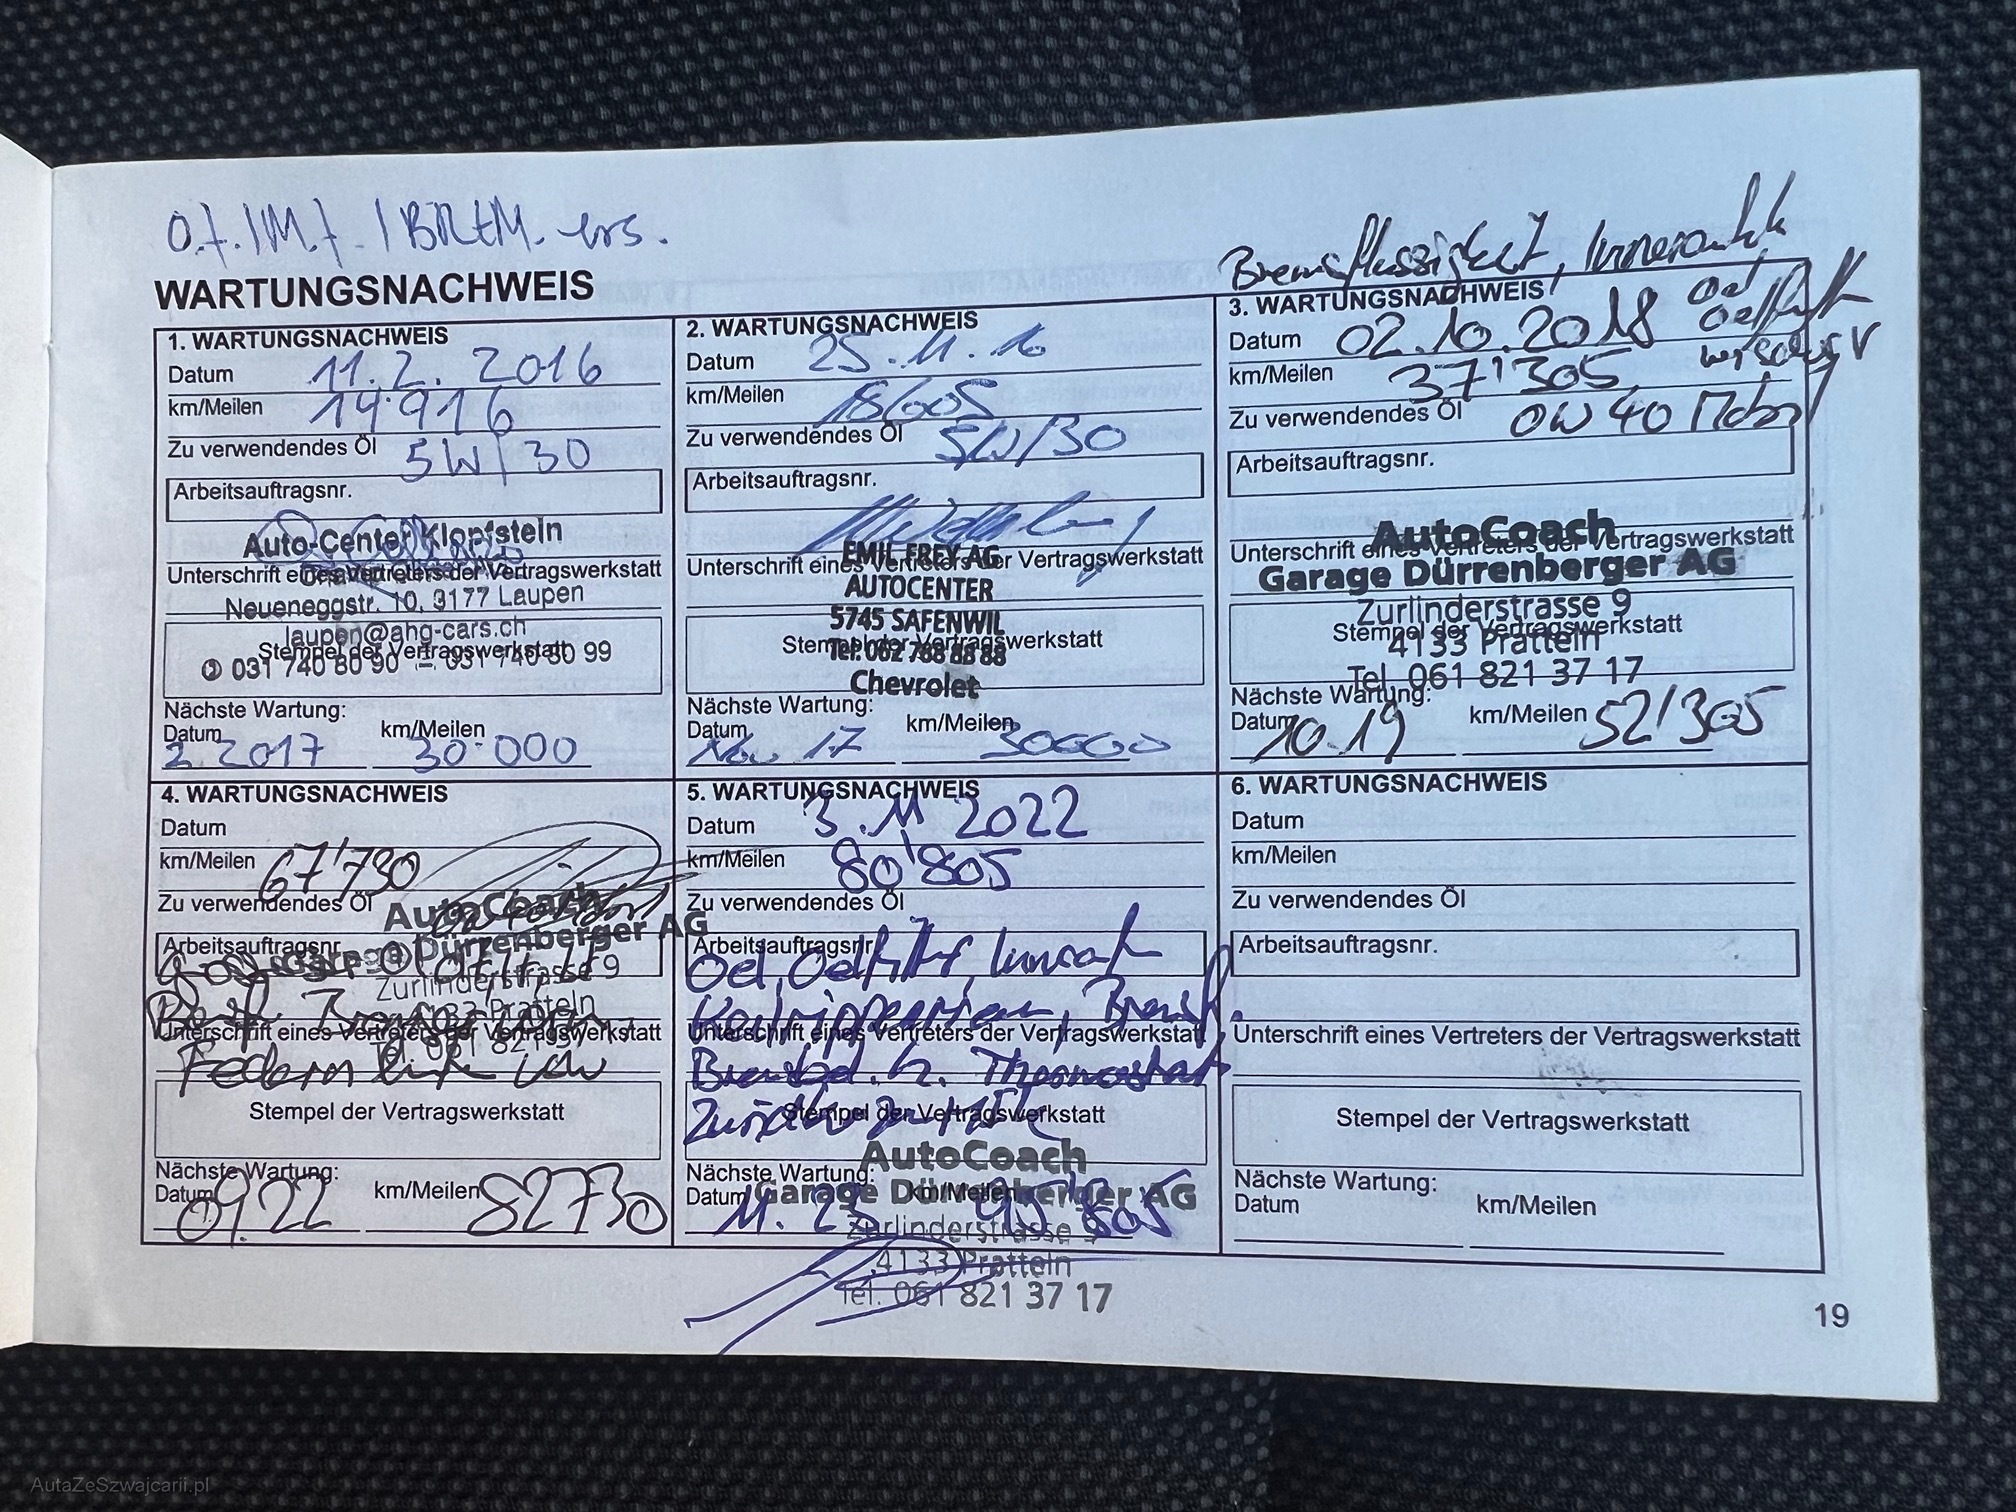 O.f. / M.f. / BREM. ers.
Bremsflüssigkeit, Innenraumluft
WARTUNGSNACHWEIS
1. WARTUNGSNACHWEIS
Datum 11.2. 2016
km/Meilen 14'916
Zu verwendendes Öl 5W/30
Arbeitsauftragsnr.
Auto-Center Klopfstein
Unterschrift eines Vertreters der Vertragswerkstatt
Neueneggstr. 10, 3177 Laupen
laupen@ahg-cars.ch
Stempel der Vertragswerkstatt
031 740 80 90 – 031 740 80 99
Nächste Wartung:
Datum 2 2017 km/Meilen 30'000
2. WARTUNGSNACHWEIS
Datum 25.11.16
km/Meilen 18'605
Zu verwendendes Öl 5W/30
Arbeitsauftragsnr.
EMIL FREY AG
Unterschrift eines Vertreters der Vertragswerkstatt
AUTOCENTER
5745 SAFENWIL
Stempel der Vertragswerkstatt
Tel. 062 788 88 88
Chevrolet
Nächste Wartung:
Datum Nov. 17 km/Meilen 30000
3. WARTUNGSNACHWEIS
Oel
Datum 02.10.2018 Oelfilter
km/Meilen 37'305
Zu verwendendes Öl 0W40 Mobil
Arbeitsauftragsnr.
AutoCoach
Unterschrift eines Vertreters der Vertragswerkstatt
Garage Dürrenberger AG
Zurlinderstrasse 9
Stempel der Vertragswerkstatt
4133 Pratteln
Tel. 061 821 37 17
Nächste Wartung:
Datum 10.19 km/Meilen 52'305
4. WARTUNGSNACHWEIS
Datum
km/Meilen 67'730
Zu verwendendes Öl
AutoCoach
Arbeitsauftragsnr.
Garage Dürrenberger AG
Zurlinderstrasse 9
4133 Pratteln
Unterschrift eines Vertreters der Vertragswerkstatt
Tel. 061 821
Federn
Stempel der Vertragswerkstatt
Nächste Wartung:
Datum 09.22 km/Meilen 82730
5. WARTUNGSNACHWEIS
Datum 3.11 2022
km/Meilen 80'805
Zu verwendendes Öl
Arbeitsauftragsnr.
Oel, Oelfilter,
Keilrippenriemen, Bremsf.
Unterschrift eines Vertreters der Vertragswerkstatt
h. Thermostat
Stempel der Vertragswerkstatt
AutoCoach
Nächste Wartung:
Garage Dürrenberger AG
Datum 11.23 km/Meilen 95'805
Zurlinderstrasse 9
4133 Pratteln
Tel. 061 821 37 17
6. WARTUNGSNACHWEIS
Datum
km/Meilen
Zu verwendendes Öl
Arbeitsauftragsnr.
Unterschrift eines Vertreters der Vertragswerkstatt
Stempel der Vertragswerkstatt
Nächste Wartung:
Datum km/Meilen
19
AutaZeSzwajcarii.pl